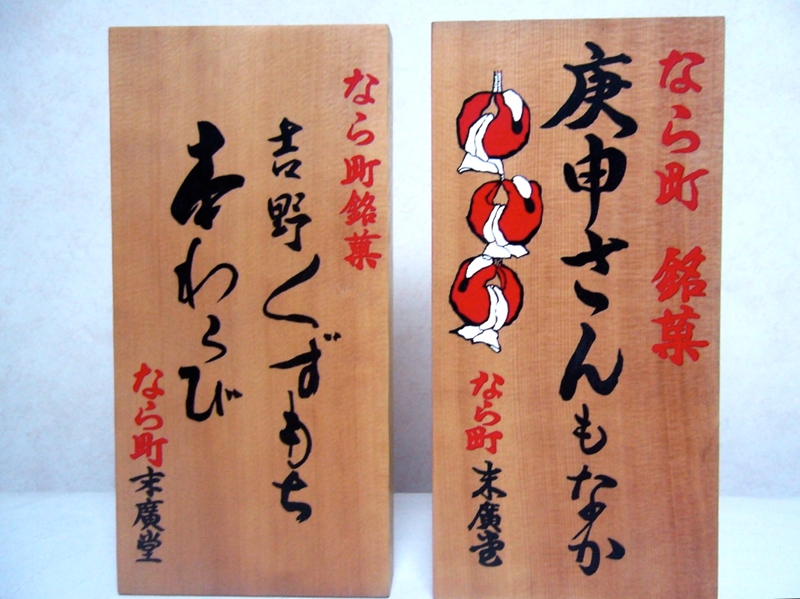 なら町 銘菓
庚申さんもなか
なら町 末廣堂
なら町銘菓
吉野くずもち
本わらび
なら町 末廣堂